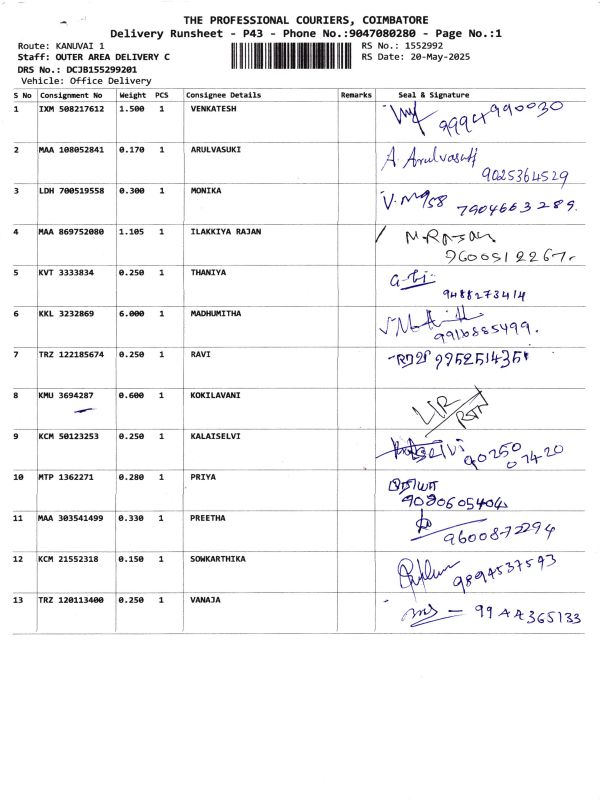 THE PROFESSIONAL COURIERS, COIMBATORE
Delivery Runsheet - P43 - Phone No.:9047080280 - Page No.:1
Route: KANUVAI 1 RS No.: 1552992
Staff: OUTER AREA DELIVERY C RS Date: 20-May-2025
DRS No.: DCJB155299201
Vehicle: Office Delivery
S No Consignment No Weight PCS Consignee Details Remarks Seal & Signature
1 IXM 508217612 1.500 1 VENKATESH 9994990030
2 MAA 108052841 0.170 1 ARULVASUKI A. Arulvasuki
9025364529
3 LDH 700519558 0.300 1 MONIKA 7904663289.
4 MAA 869752080 1.105 1 ILAKKIYA RAJAN M.RAJAN
9600512267.
5 KVT 3333834 0.250 1 THANIYA
9488273414
6 KKL 3232869 6.000 1 MADHUMITHA
9916885499.
7 TRZ 122185674 0.250 1 RAVI ரவி 9952514351
8 KMU 3694287 0.600 1 KOKILAVANI
9 KCM 50123253 0.250 1 KALAISELVI 90250
07420
10 MTP 1362271 0.280 1 PRIYA பிரியா
9080605404
11 MAA 303541499 0.330 1 PREETHA
9600872294
12 KCM 21552318 0.150 1 SOWKARTHIKA
9894537593
13 TRZ 120113400 0.250 1 VANAJA 9944365133